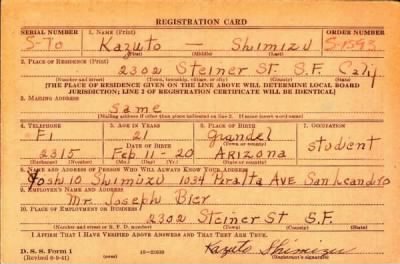 REGISTRATION CARD
SERIAL NUMBER 1. NAME (Print) ORDER NUMBER
S-70 Kazuto — Shimizu S-1593
(First) (Middle) (Last)
2. PLACE OF RESIDENCE (Print)
2302 Steiner St. S.F. Caly
(Number and street) (Town, township, village, or city) (County) (State)
[THE PLACE OF RESIDENCE GIVEN ON THE LINE ABOVE WILL DETERMINE LOCAL BOARD
JURISDICTION; LINE 2 OF REGISTRATION CERTIFICATE WILL BE IDENTICAL]
3. MAILING ADDRESS
Same
[Mailing address if other than place indicated on line 2. If same insert word same]
4. TELEPHONE 5. AGE IN YEARS 6. PLACE OF BIRTH 7. OCCUPATION
FI 21 Glandel student
DATE OF BIRTH
2315 Feb 11-20 Arizona
(Exchange) (Number) (Mo.) (Day) (Yr.) (State or country)
8. NAME AND ADDRESS OF PERSON WHO WILL ALWAYS KNOW YOUR ADDRESS
Yoshio Shimizu 1034 Peralta Ave San Leandro
9. EMPLOYER'S NAME AND ADDRESS
Mr. Joseph Bier
10. PLACE OF EMPLOYMENT OR BUSINESS
2302 Steiner St S.F.
(Number and street or R. F. D. number) (Town) (County) (State)
I AFFIRM THAT I HAVE VERIFIED ABOVE ANSWERS AND THAT THEY ARE TRUE.
D. S. S. Form 1 Kazuto Shimizu
(Revised 6-9-41) (Registrant's signature)